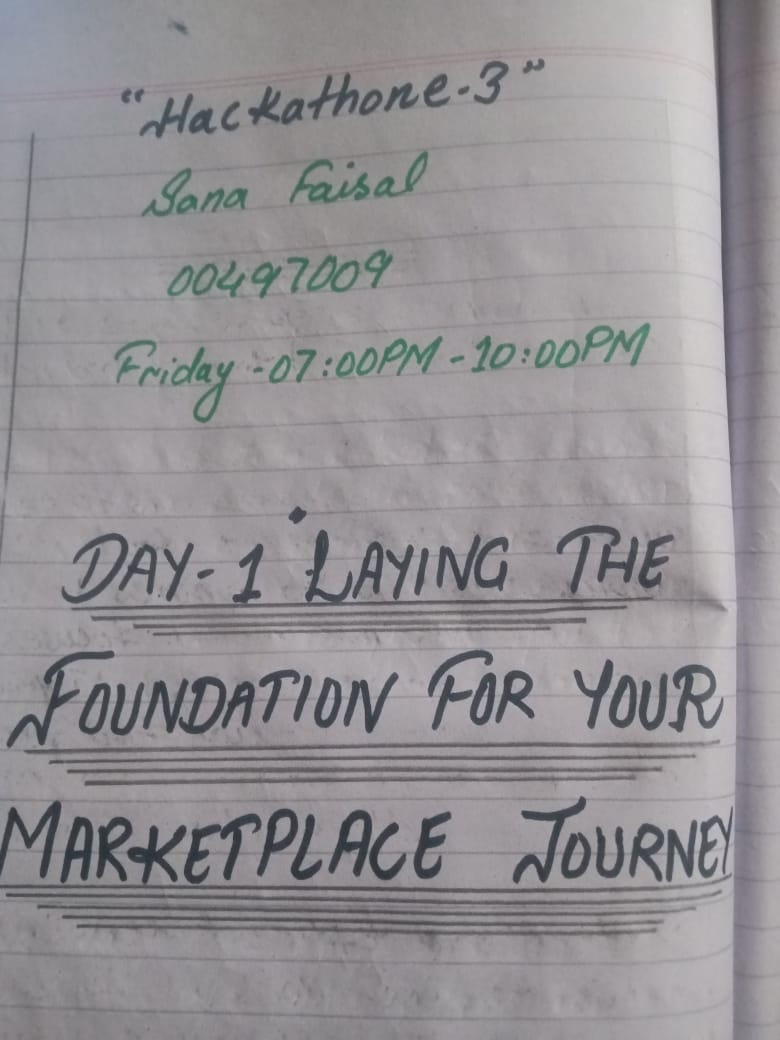 "Hackathone-3"
Sana Faisal
00497009
Friday -07:00PM -10:00PM
DAY-1 "LAYING THE
FOUNDATION FOR YOUR
MARKETPLACE JOURNEY